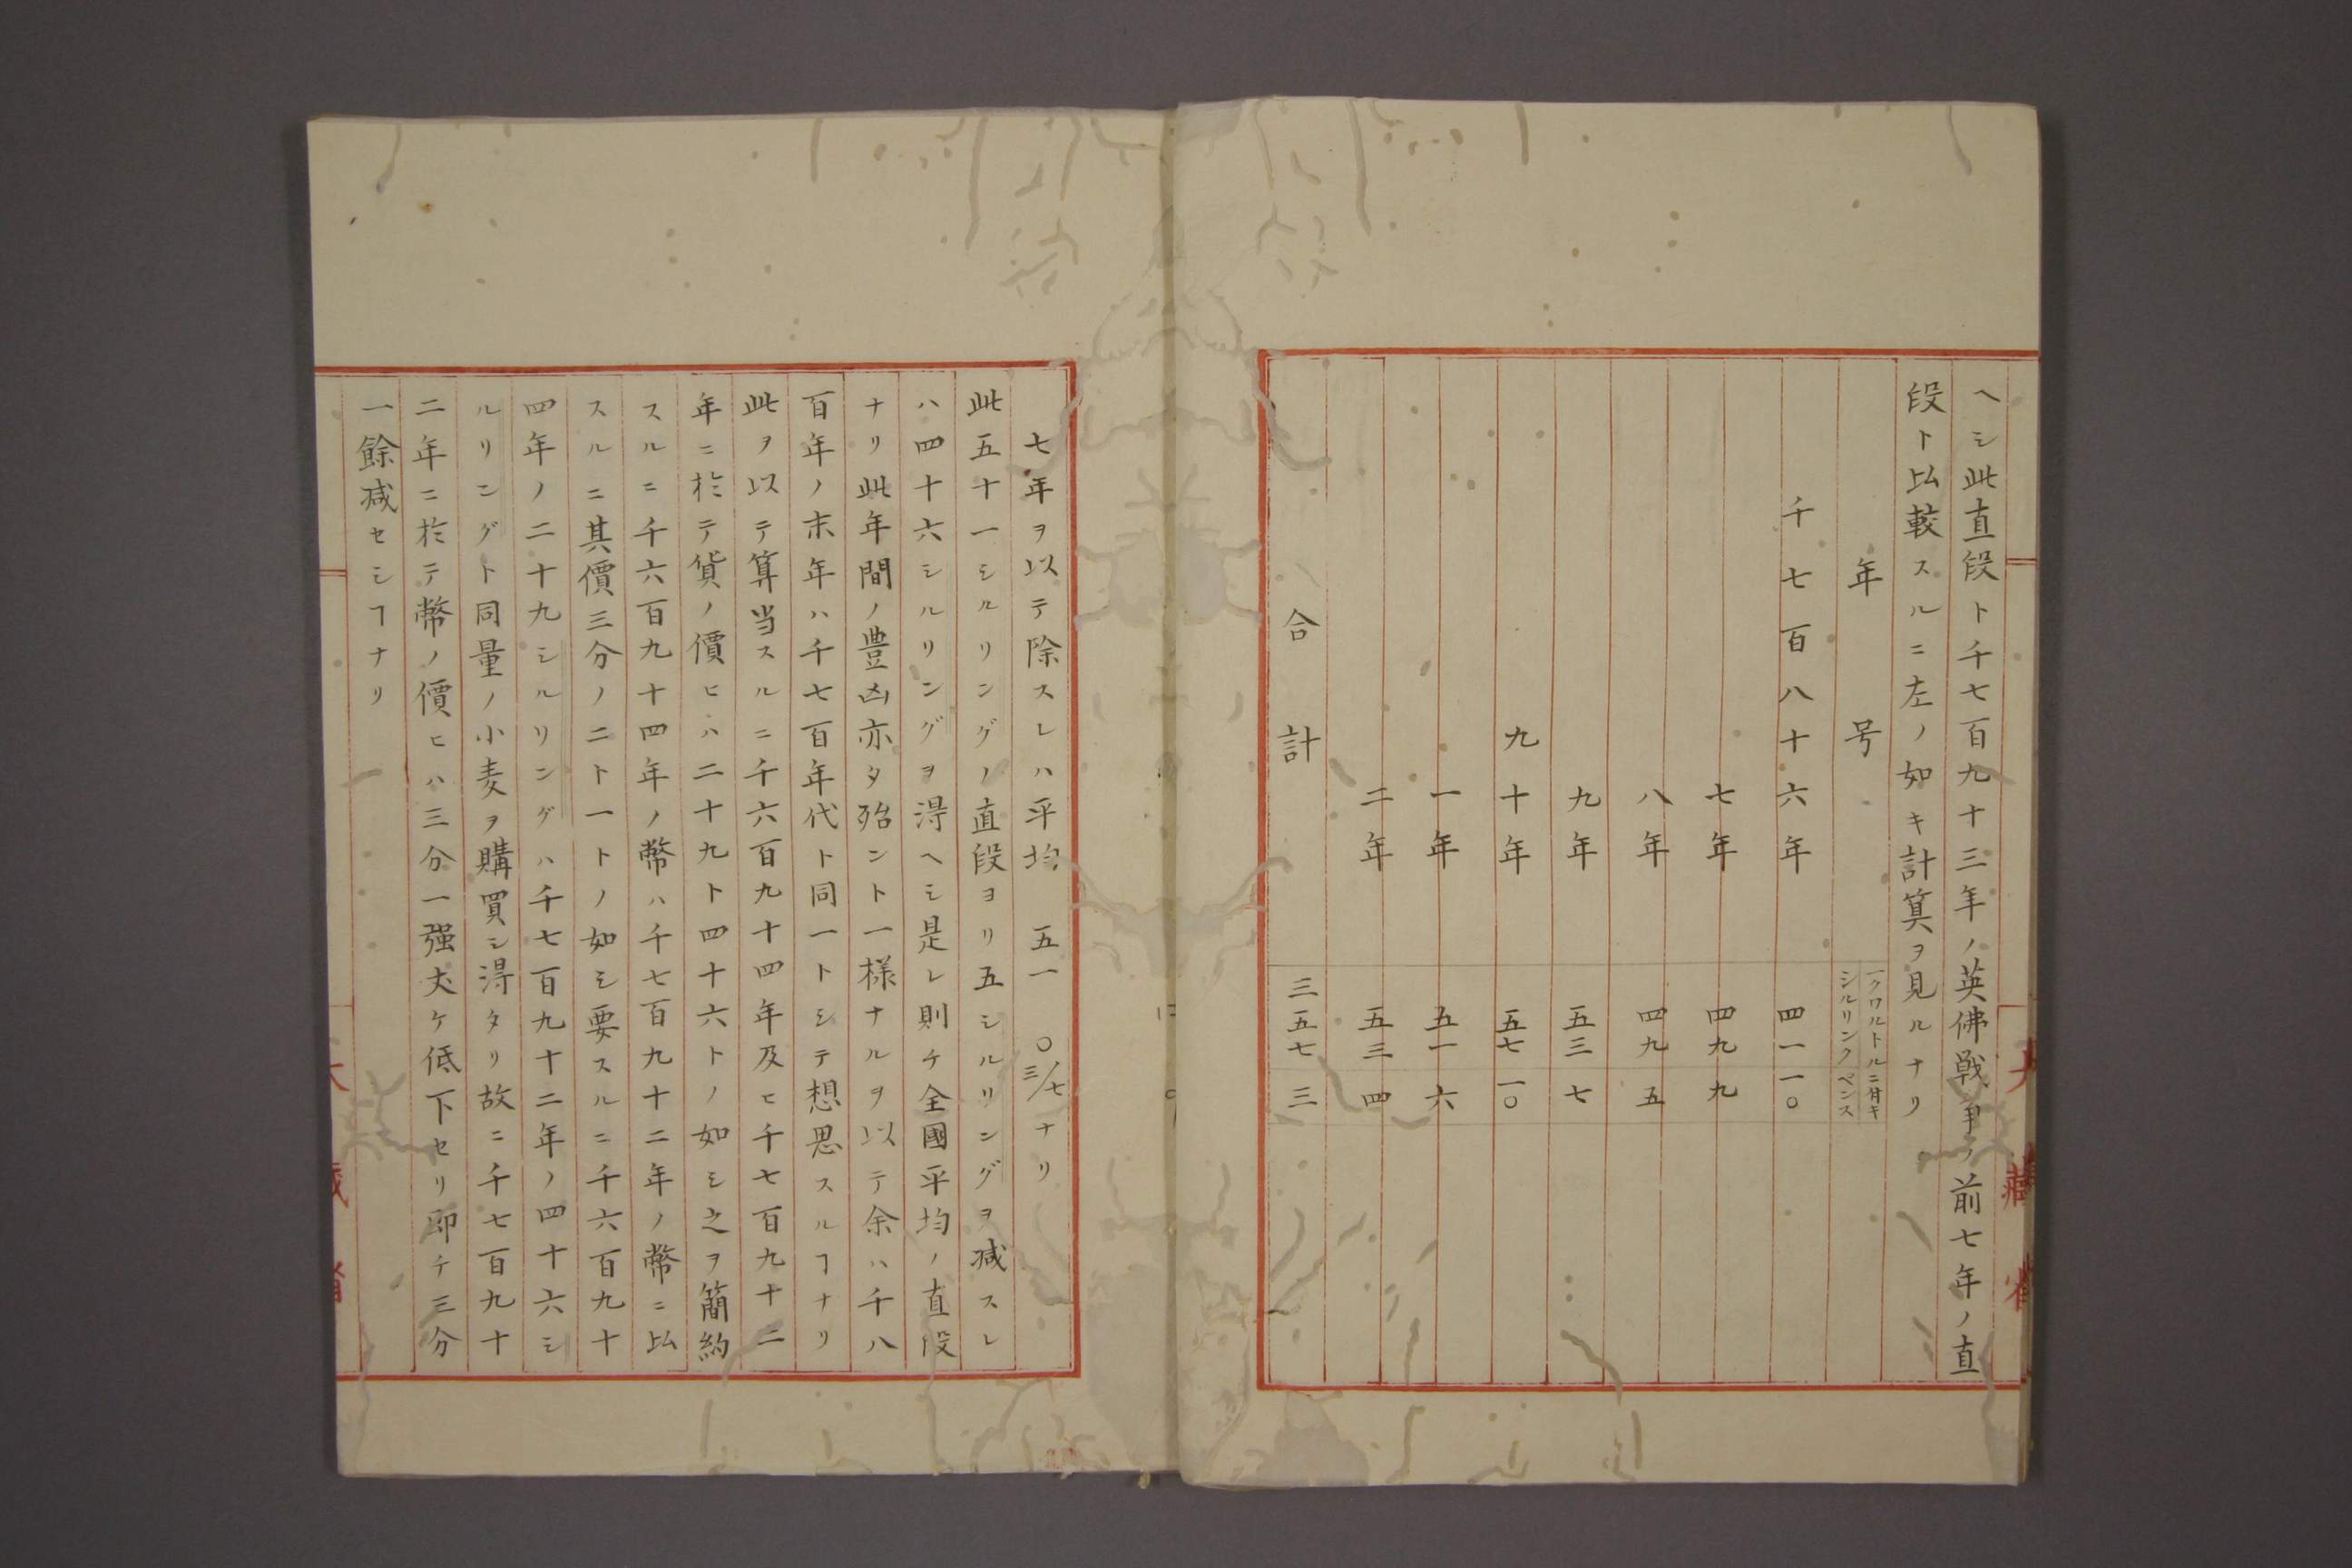 ヘシ此直段ト千七百九十三年ノ英佛戦争ノ前七年ノ直
段ト比較スルニ左ノ如キ計算ヲ見ルナリ
年号 一クワルトルニ付キ シルリンク ペンス
千七百八十六年 四一 一〇
七年 四九 九
八年 四九 五
九年 五三 七
九十年 五七 一〇
一年 五一 六
二年 五三 四
合計 三五七 三
大藏省
七年ヲ以テ除スレハ平均 五一 〇三/七ナリ
此五十一シルリングノ直段ヨリ五シルリングヲ減スレ
ハ四十六シルリングヲ淂ヘシ是レ則チ全國平均ノ直段
ナリ此年間ノ豊凶亦タ殆ント一様ナルヲ以テ余ハ千八
百年ノ末年ハ千七百年代ト同一トシテ想思スルヿナリ
此ヲ以テ算当スルニ千六百九十四年及ヒ千七百九十二
年ニ於テ貨ノ價ヒハ二十九ト四十六トノ如シ之ヲ簡約
スルニ千六百九十四年ノ幣ハ千七百九十二年ノ幣ニ比
スルニ其價三分ノ二ト一トノ如シ要スルニ千六百九十
四年ノ二十九シルリングハ千七百九十二年ノ四十六シ
ルリングト同量ノ小麦ヲ購買シ淂タリ故ニ千七百九十
二年ニ於テ幣ノ價ヒハ三分一強丈ケ低下セリ即チ三分
一餘减セシヿナリ